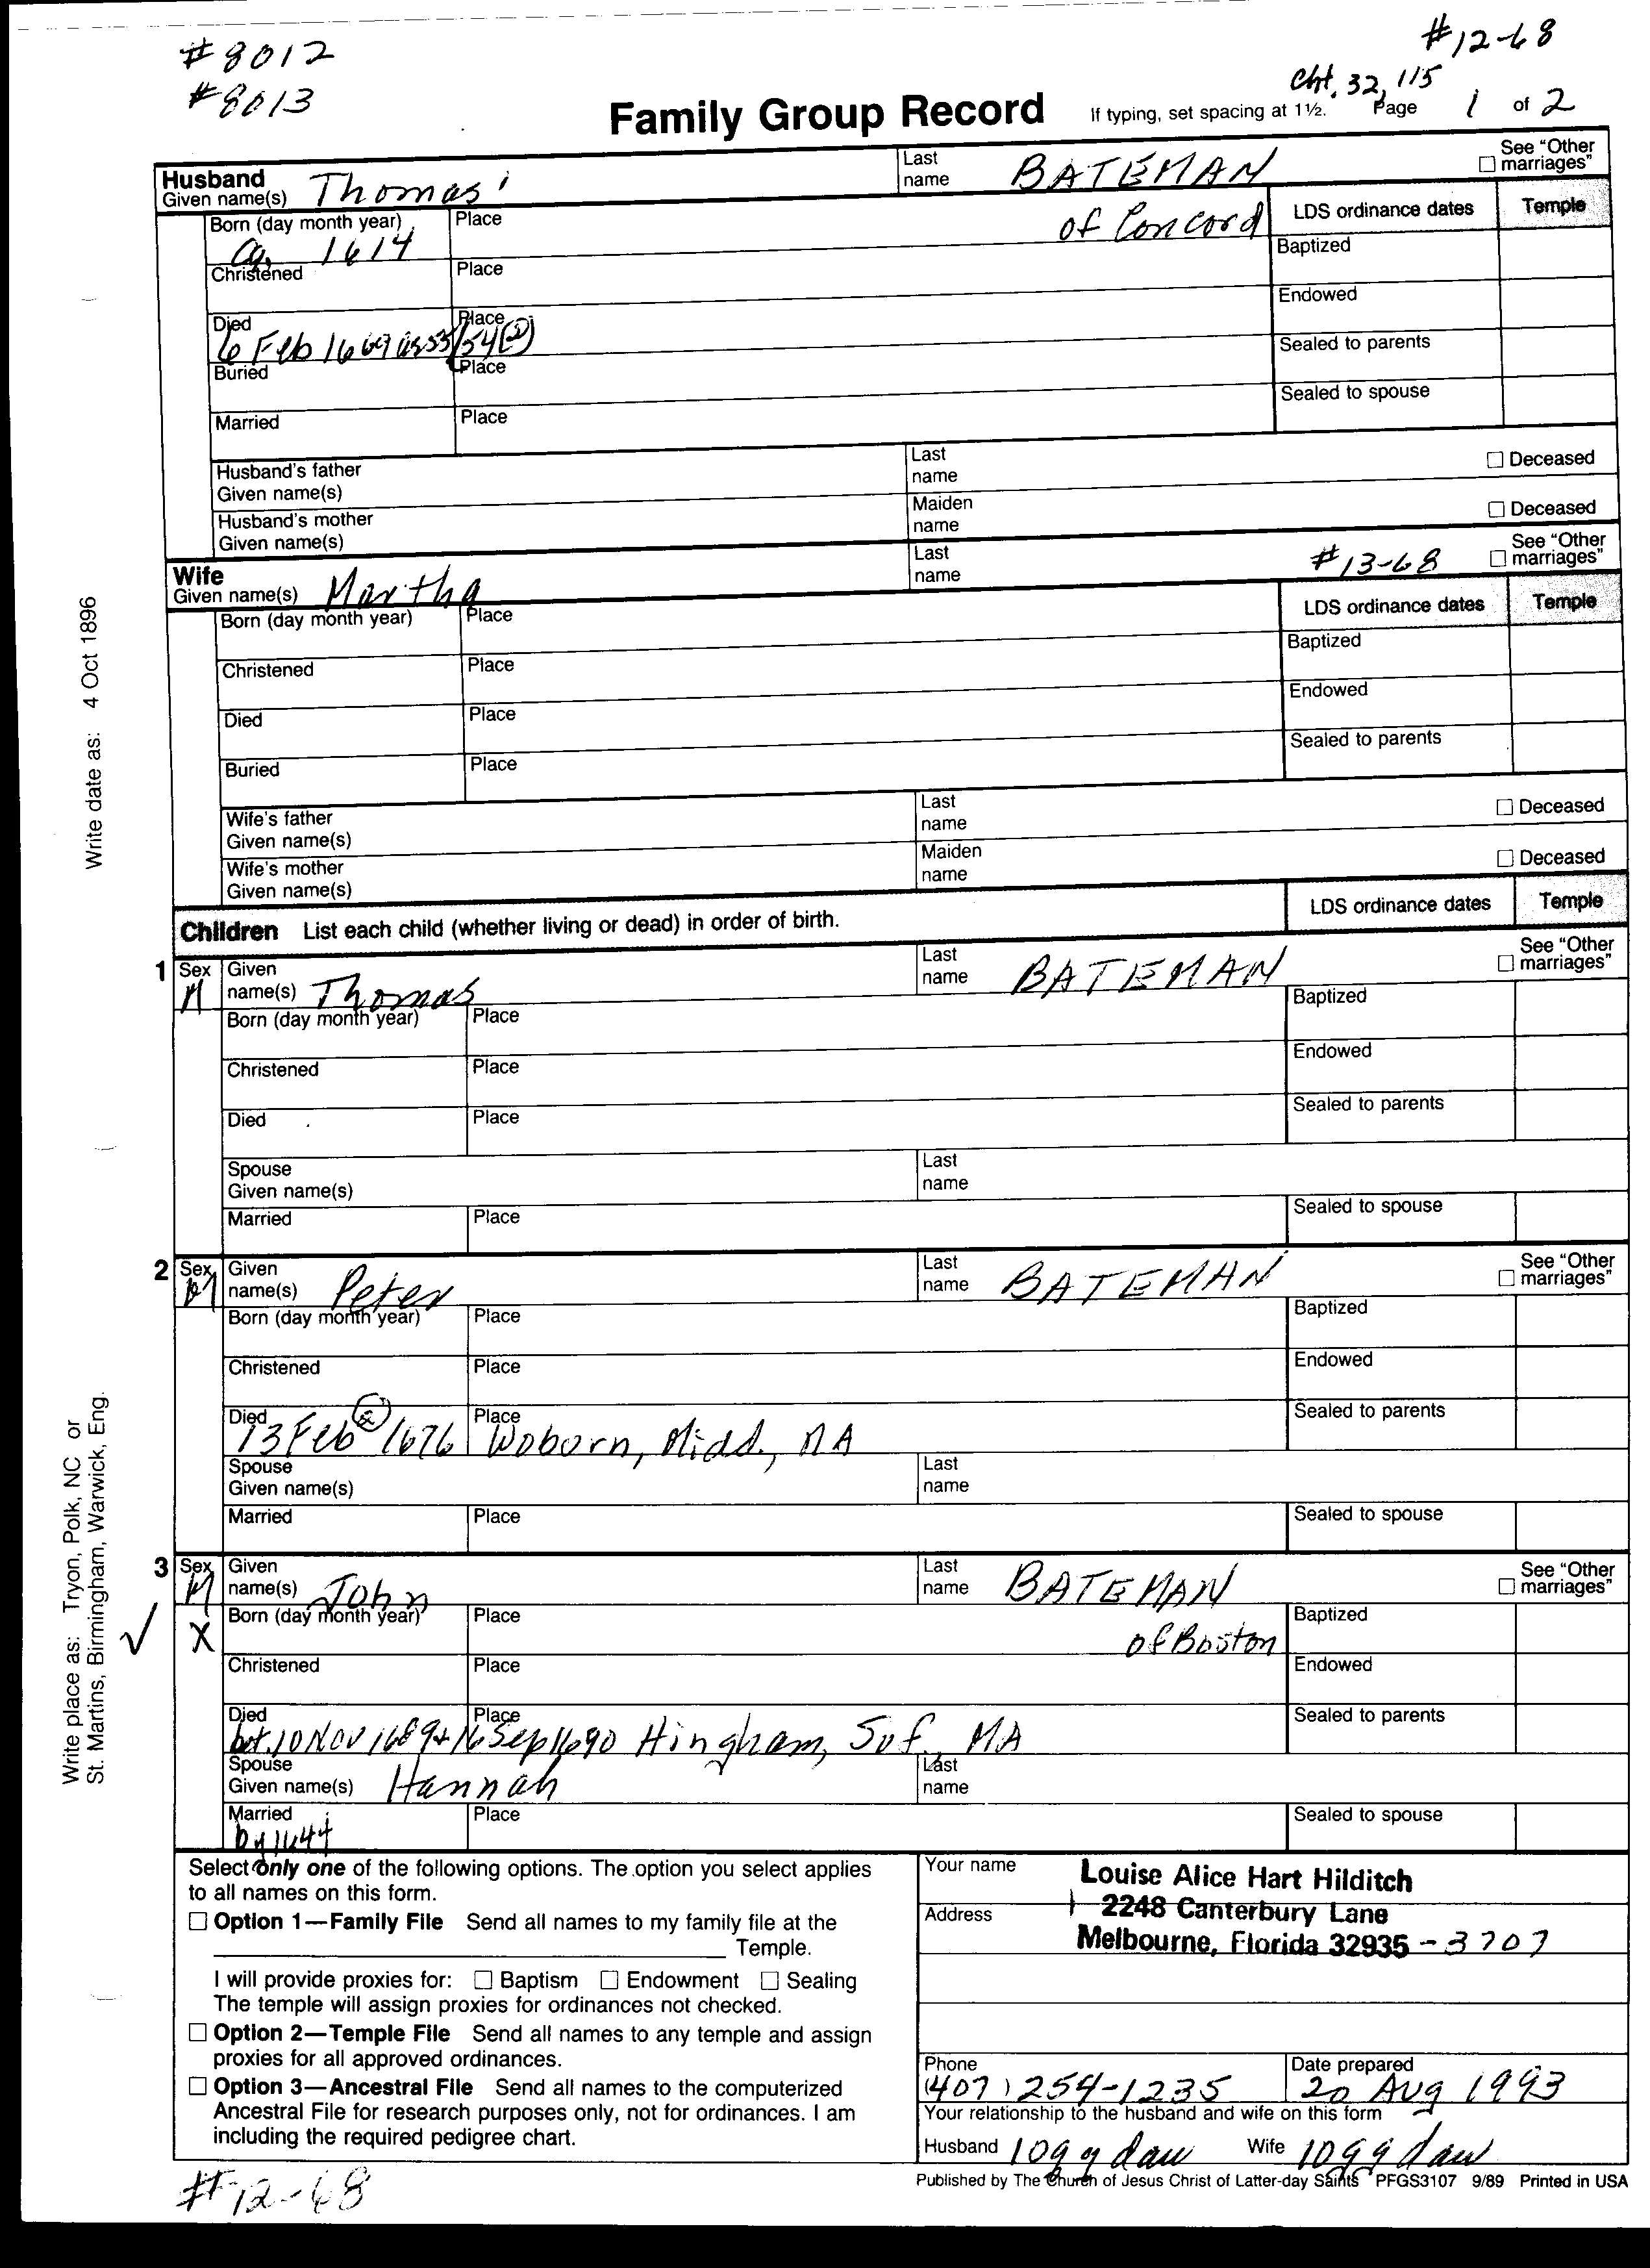 #8012
#12-68
#8013
Cht. 32, 115
Family Group Record If typing, set spacing at 1½. Page 1 of 2
Husband
Given name(s) Thomas Last name BATEMAN See "Other marriages"
Born (day month year) Ca. 1614 Place of Concord LDS ordinance dates Temple
Baptized
Christened Place
Endowed
Died 6 Feb 1669 Place
Sealed to parents
Buried Place
Sealed to spouse
Married Place
Husband's father Given name(s) Last name Deceased
Husband's mother Given name(s) Maiden name Deceased
Wife
Given name(s) Martha Last name #13-68 See "Other marriages"
Born (day month year) Place LDS ordinance dates Temple
Baptized
Christened Place
Endowed
Died Place
Sealed to parents
Buried Place
Wife's father Given name(s) Last name Deceased
Wife's mother Given name(s) Maiden name Deceased
Children List each child (whether living or dead) in order of birth. LDS ordinance dates Temple
1 Sex M Given name(s) Thomas Last name BATEMAN See "Other marriages"
Born (day month year) Place Baptized
Christened Place Endowed
Died Place Sealed to parents
Spouse Given name(s) Last name
Married Place Sealed to spouse
2 Sex M Given name(s) Peter Last name BATEMAN See "Other marriages"
Born (day month year) Place Baptized
Christened Place Endowed
Died 13 Feb 1676 Place Woburn, Midd., MA Sealed to parents
Spouse Given name(s) Last name
Married Place Sealed to spouse
3 Sex M Given name(s) John Last name BATEMAN See "Other marriages"
X Born (day month year) Place of Boston Baptized
Christened Place Endowed
Died bet. 10 Nov 1689 + 16 Sep 1690 Place Hingham, Suf., MA Sealed to parents
Spouse Given name(s) Hannah Last name
Married by 1644 Place Sealed to spouse
Select only one of the following options. The option you select applies
to all names on this form.
Option 1—Family File Send all names to my family file at the
Temple.
I will provide proxies for: Baptism Endowment Sealing
The temple will assign proxies for ordinances not checked.
Option 2—Temple File Send all names to any temple and assign
proxies for all approved ordinances.
Option 3—Ancestral File Send all names to the computerized
Ancestral File for research purposes only, not for ordinances. I am
including the required pedigree chart.
Your name Louise Alice Hart Hilditch
Address 2248 Canterbury Lane
Melbourne, Florida 32935-3707
Phone (407) 254-1235 Date prepared 20 Aug 1993
Your relationship to the husband and wife on this form
Husband 10 g g dau Wife 10 g g dau
Published by The Church of Jesus Christ of Latter-day Saints PFGS3107 9/89 Printed in USA
#12-68
Write date as: 4 Oct 1896
Write place as: Tryon, Polk, NC or
St. Martins, Birmingham, Warwick, Eng.